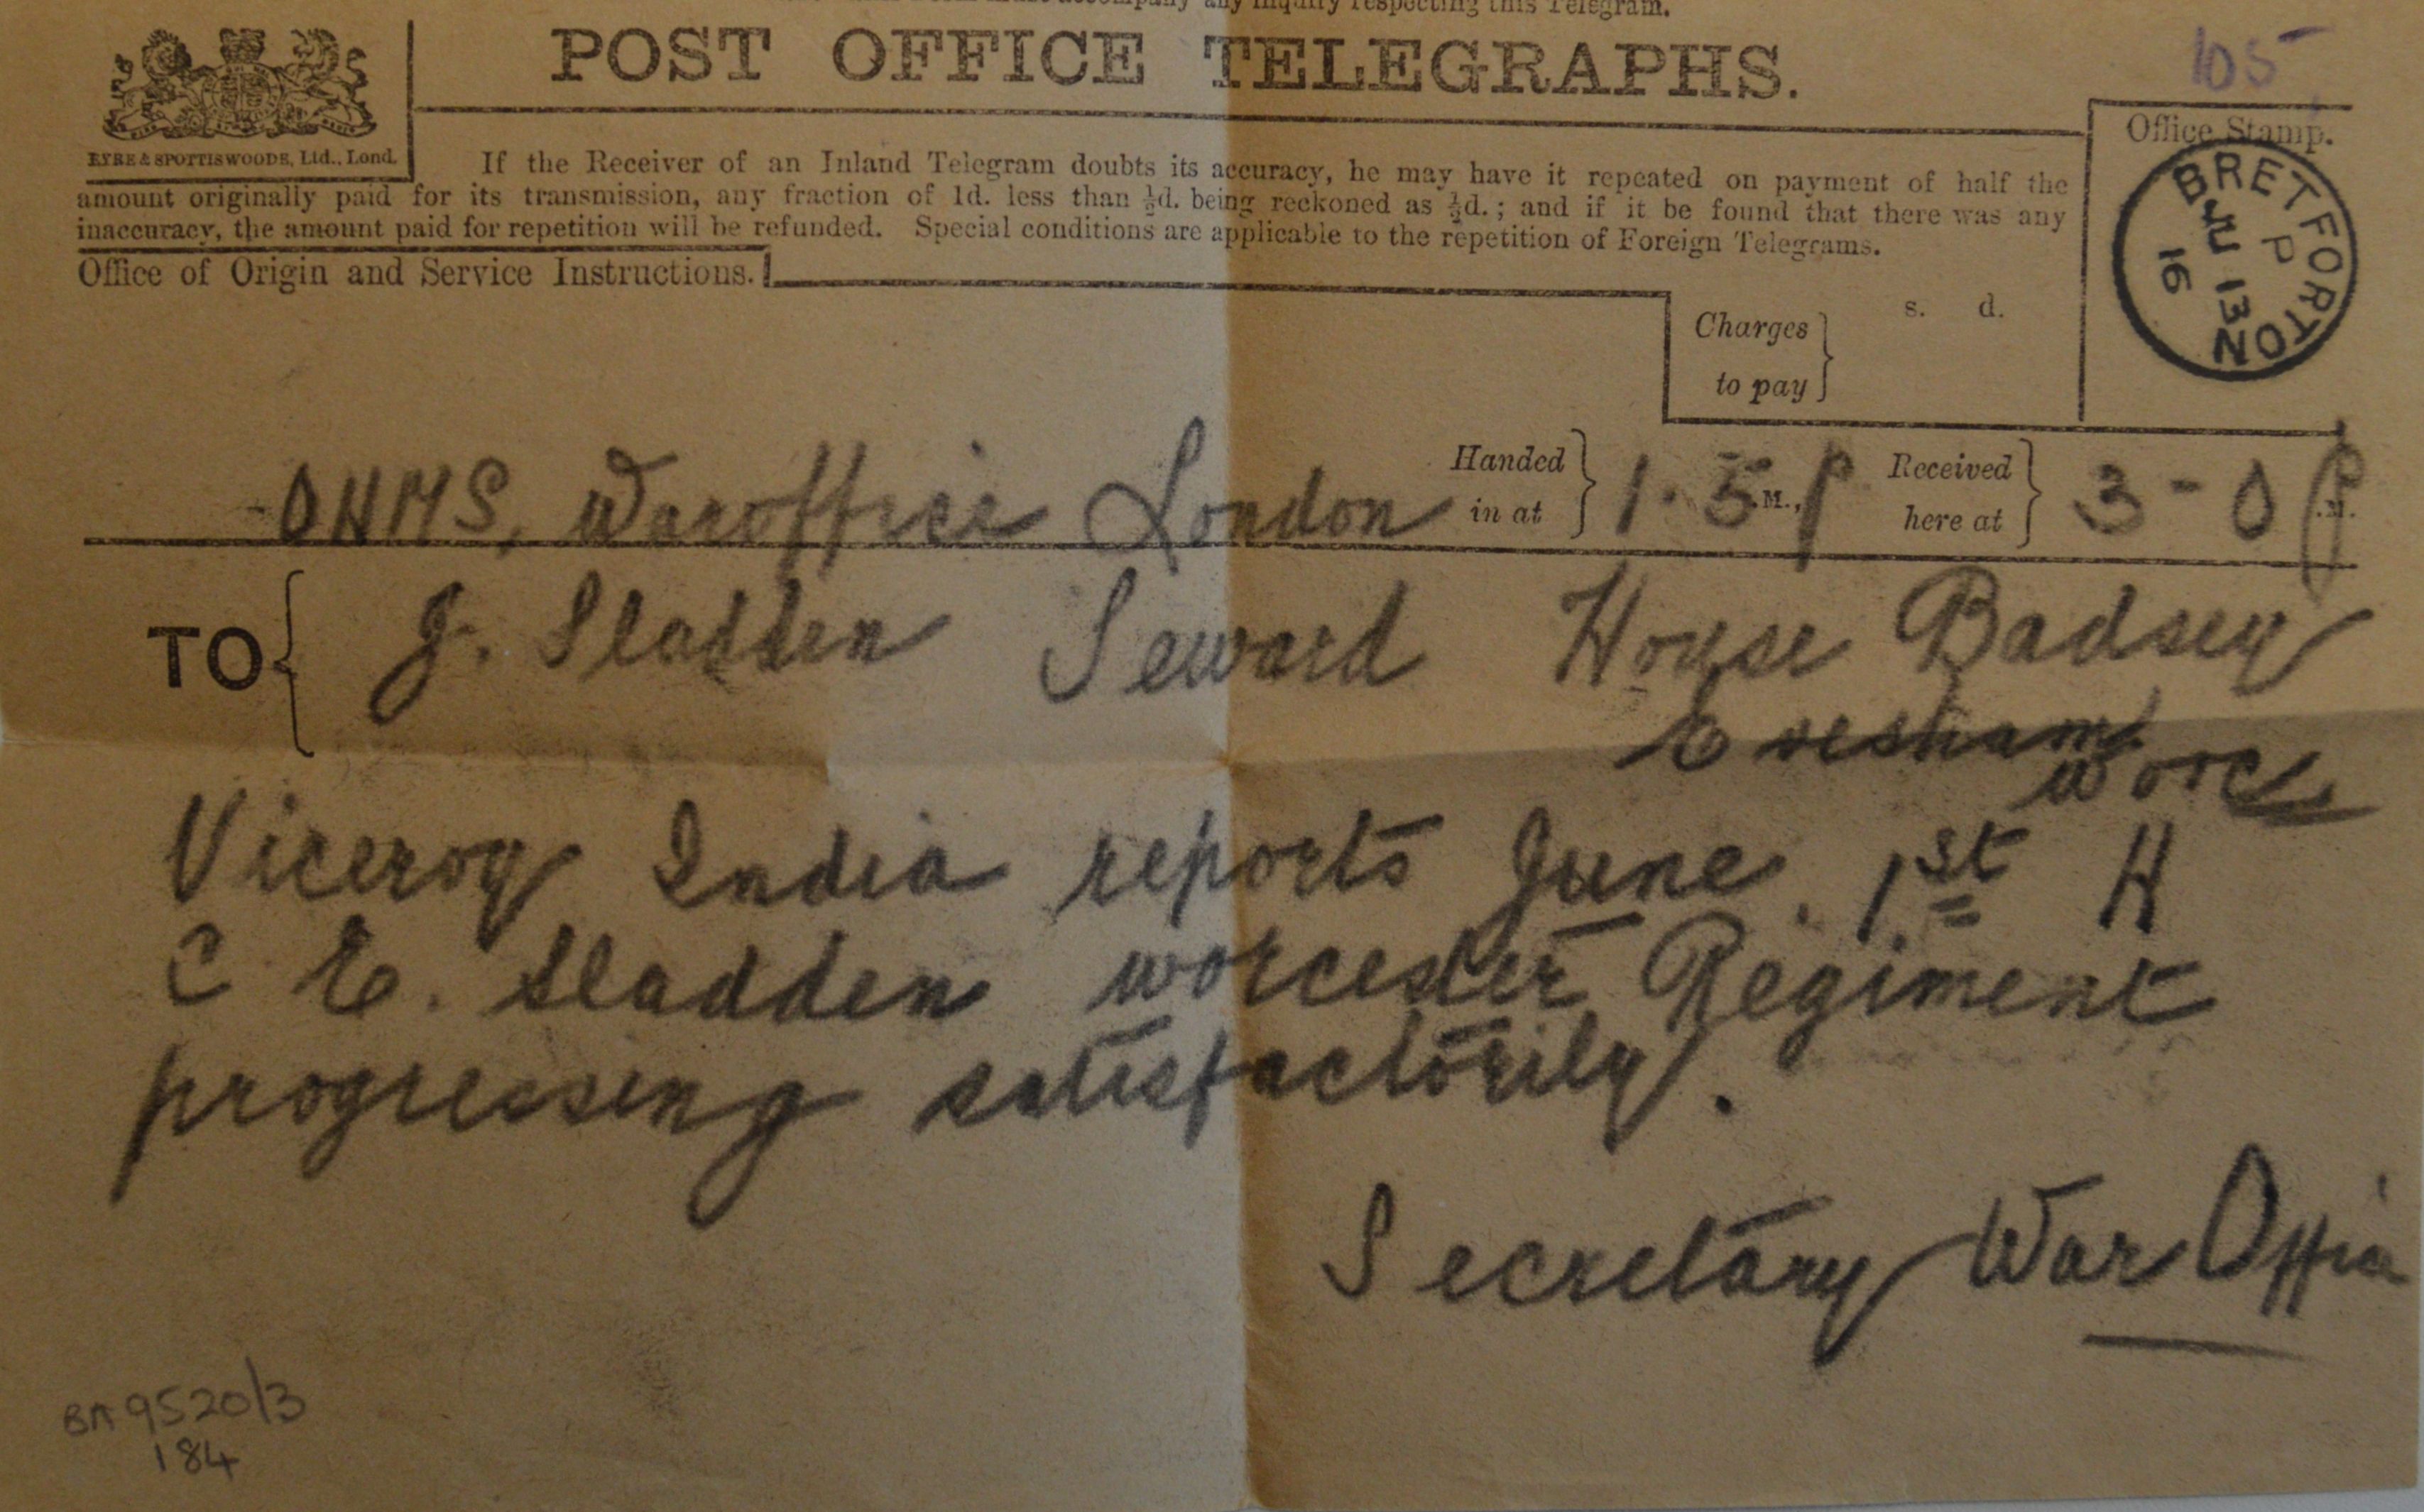 accompany any inquiry respecting this Telegram.
POST OFFICE TELEGRAPHS.
105
EYRE & SPOTTISWOODE, Ltd., Lond.
Office Stamp.
BRETFORTON
P
JU 13
16
If the Receiver of an Inland Telegram doubts its accuracy, he may have it repeated on payment of half the
amount originally paid for its transmission, any fraction of 1d. less than ½d. being reckoned as ½d.; and if it be found that there was any
inaccuracy, the amount paid for repetition will be refunded. Special conditions are applicable to the repetition of Foreign Telegrams.
Office of Origin and Service Instructions.
Charges to pay
s. d.
OHMS, War office London Handed in at 1.5 M., P Received here at 3-0 P .M.
TO J. Sladden Seward House Badsey
Evesham
Worc
Viceroy India reports June. 1st H
C E. Sladden Worcester Regiment
progressing satisfactorily.
Secretary War Office
BA 9520/3
184